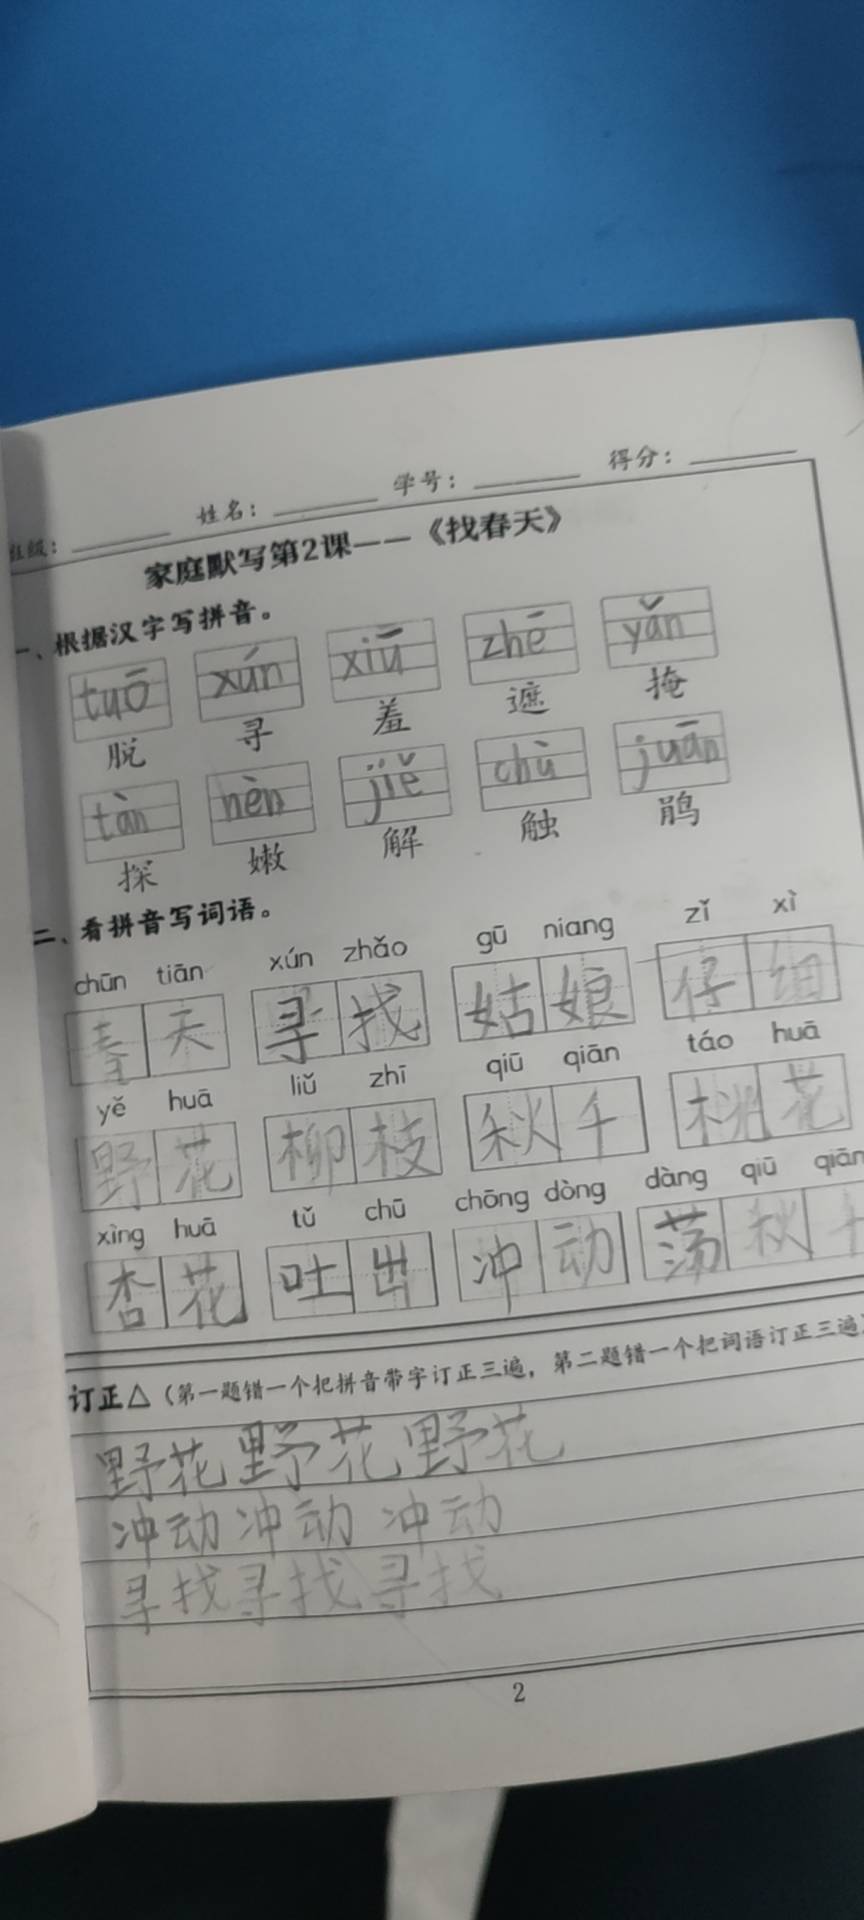 班级： 姓名： 学号： 得分：
家庭默写第2课——《找春天》
一、根据汉字写拼音。
tuō xún xiū zhē yǎn
脱 寻 羞 遮 掩
tàn nèn jiě chù juān
探 嫩 解 触 鹃
二、看拼音写词语。
chūn tiān xún zhǎo gū niang zǐ xì
春天 寻找 姑娘 仔细
yě huā liǔ zhī qiū qiān táo huā
野花 柳枝 秋千 桃花
xìng huā tǔ chū chōng dòng dàng qiū qiān
杏花 吐出 冲动 荡秋千
订正△（第一题错一个把拼音带字订正三遍，第二题错一个把词语订正三遍）
野花 野花 野花
冲动 冲动 冲动
寻找 寻找 寻找
2